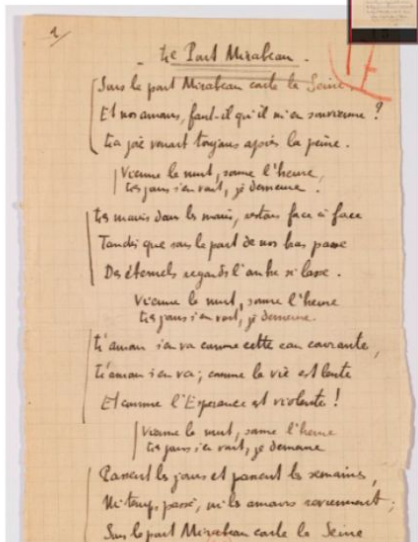 Le Pont Mirabeau.
Sous le pont Mirabeau coule la Seine
Et nos amours, faut-il qu'il m'en souvienne ?
La joie venait toujours après la peine.
Vienne la nuit, sonne l'heure,
Les jours s'en vont, je demeure.
Les mains dans les mains, restons face à face
Tandis que sous le pont de nos bras passe
Des éternels regards l'onde si lasse.
Vienne la nuit, sonne l'heure
Les jours s'en vont, je demeure.
L'amour s'en va comme cette eau courante,
L'amour s'en va ; comme la vie est lente
Et comme l'Espérance est violente !
Vienne la nuit, sonne l'heure
Les jours s'en vont, je demeure
Passent les jours et passent les semaines,
Ni temps passé, ni les amours reviennent ;
Sous le pont Mirabeau coule la Seine